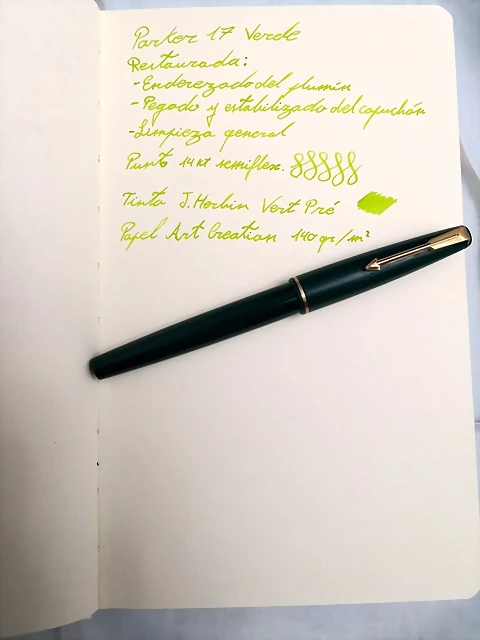 Parker 17 Verde
Restaurada:
-Enderezado del plumín
-Pegado y estabilizado del capuchón
-Limpieza general
Punto 14 KT semiflex.
Tinta J. Herbin Vert Pré
Papel Art Creation 140 gr/m²